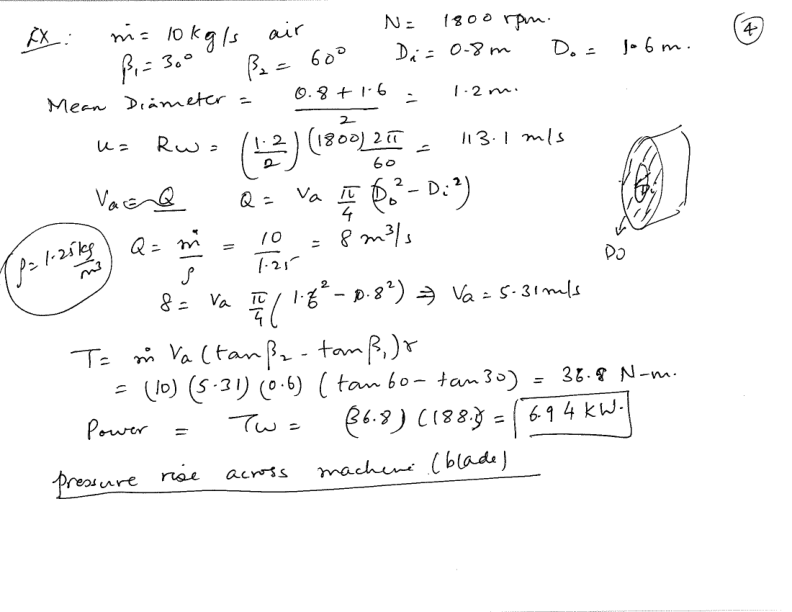 EX: ṁ = 10 kg/s air N = 1800 rpm. (4)
β₁ = 30° β₂ = 60° Di = 0.8 m Do = 1.6 m.
Mean Diameter = (0.8 + 1.6)/2 = 1.2 m.
u = Rω = (1.2/2) (1800) 2π/60 = 113.1 m/s
Va = Q Q = Va π/4 (Do² - Di²)
ρ = 1.25 kg/m³ Q = ṁ/ρ = 10/1.25 = 8 m³/s
Do
8 = Va π/4 (1.6² - 0.8²) ⇒ Va = 5.31 m/s
T = ṁ Va (tan β₂ - tan β₁) r
= (10) (5.31) (0.6) (tan 60 - tan 30) = 36.8 N-m.
Power = Tω = (36.8) (188.5) = 6.94 kW.
pressure rise across machine (blade)